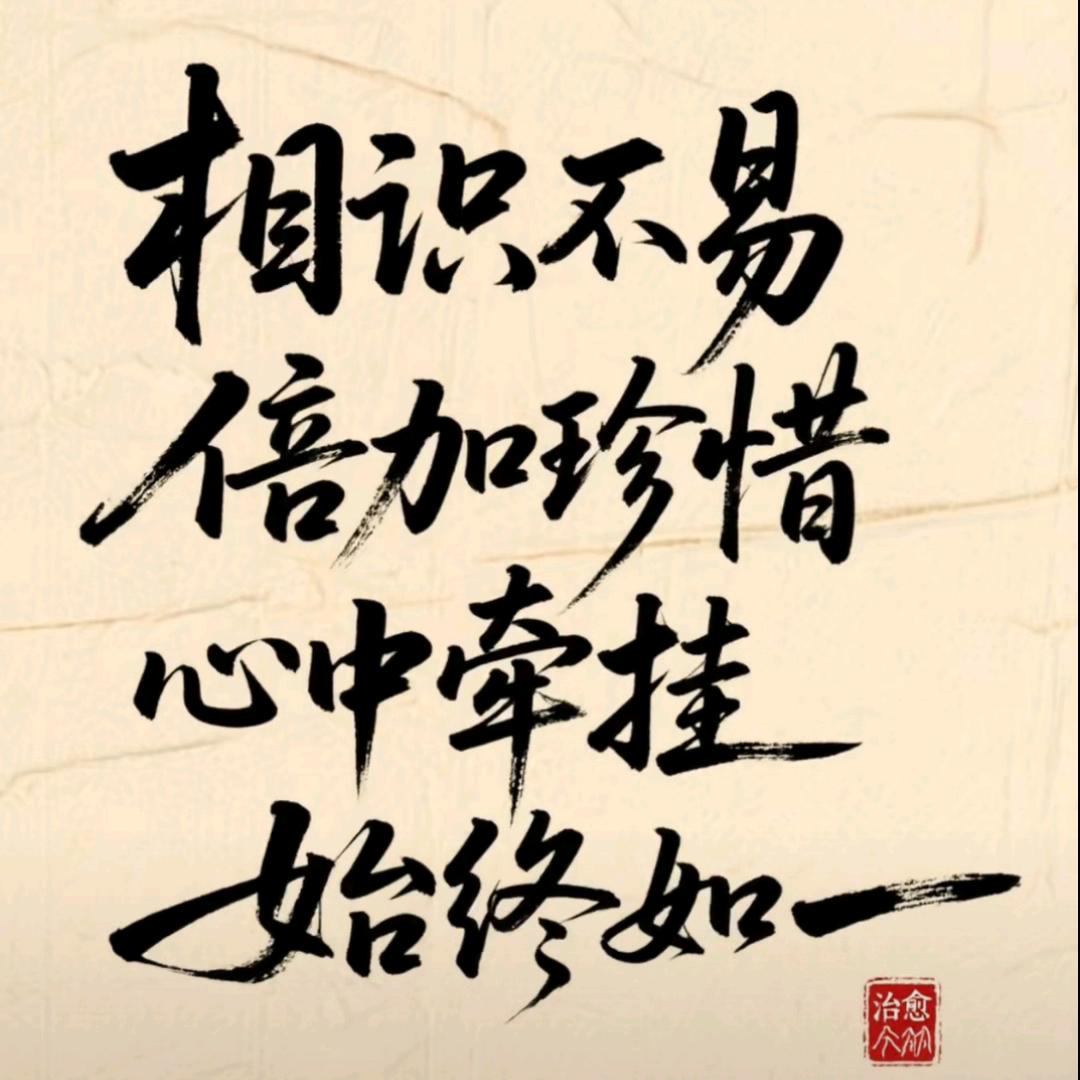 相识不易
倍加珍惜
心中牵挂
始终如一
治愈